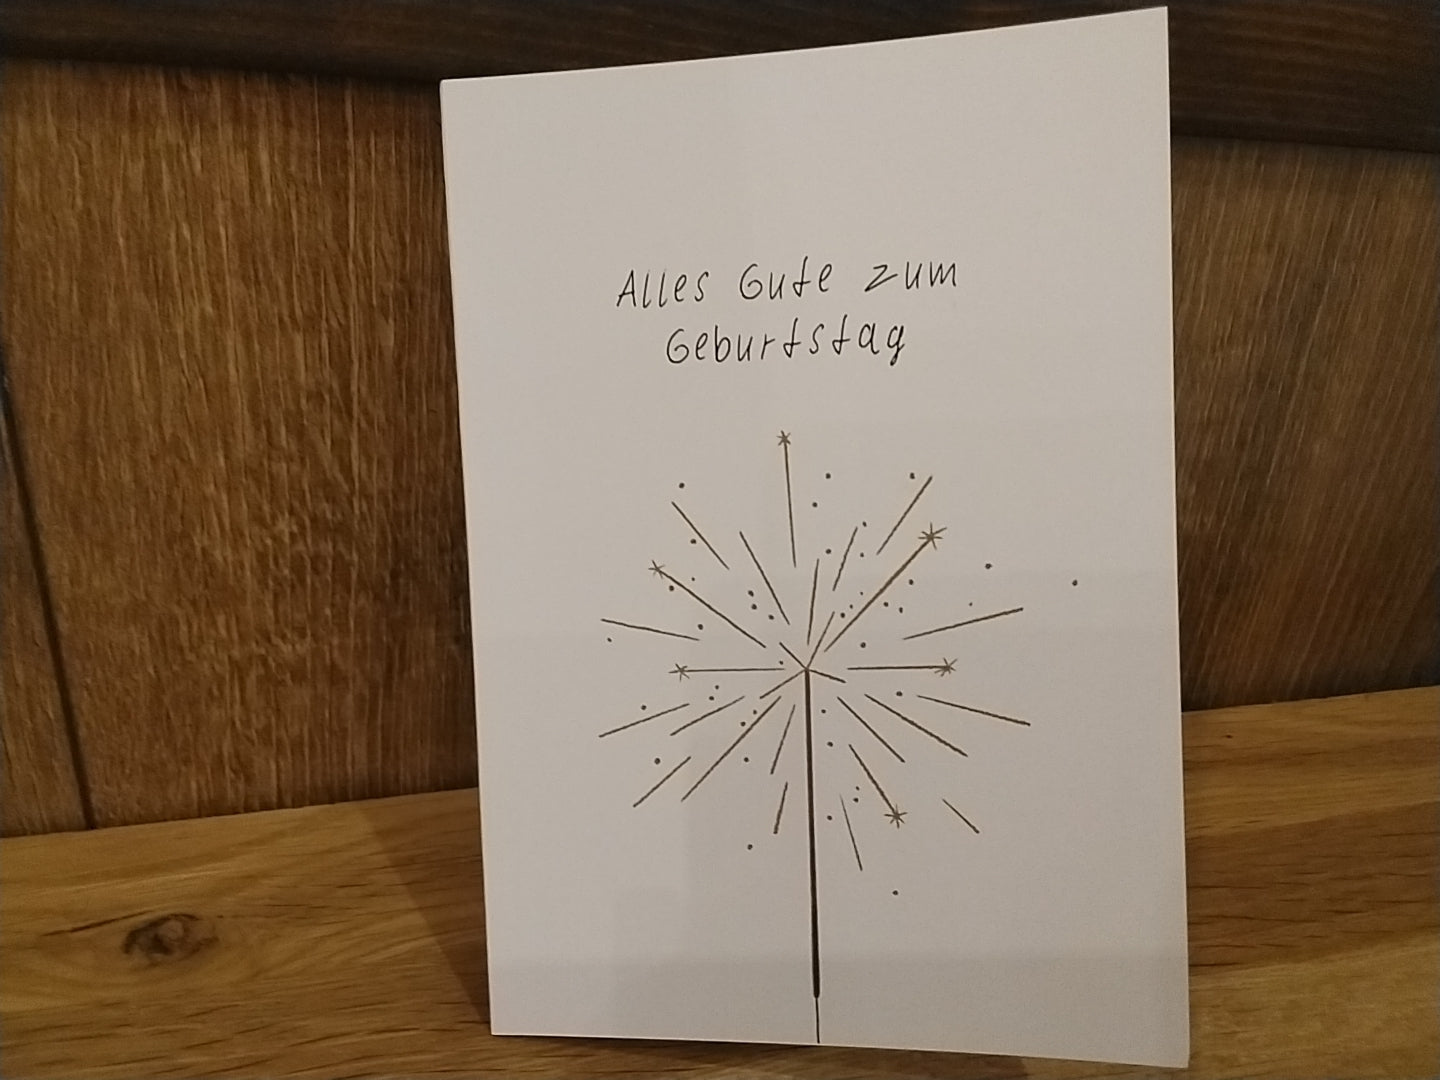 Alles Gute zum
Geburtstag